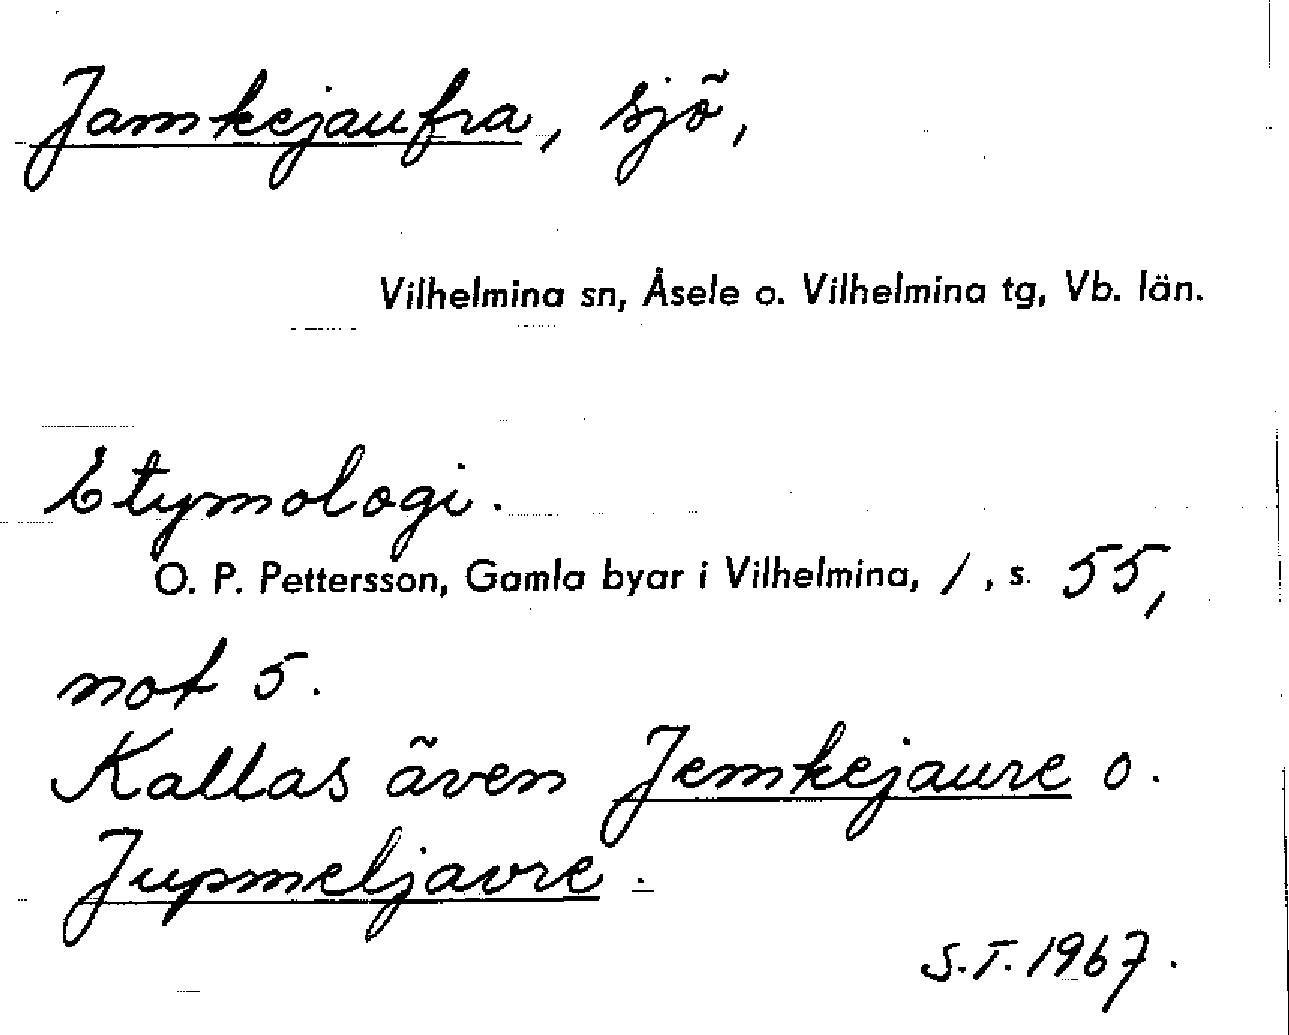 Jamkejaufra, sjö,
Vilhelmina sn, Åsele o. Vilhelmina tg, Vb. län.
Etymologi.
O. P. Pettersson, Gamla byar i Vilhelmina, 1, s. 55,
not 5.
Kallas även Jemkejaure o.
Jupmeljavre.
S.T. 1967.